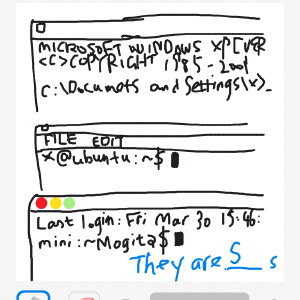 MICROSOFT WINDOWS XP [VER
<C> COPYRIGHT 1985-2001
C:\Documets and Settings\x>_
FILE EDIT
x@ubuntu:~$
Last login: Fri Mar 30 15:46:
mini:~Mogita$
They are S__ s